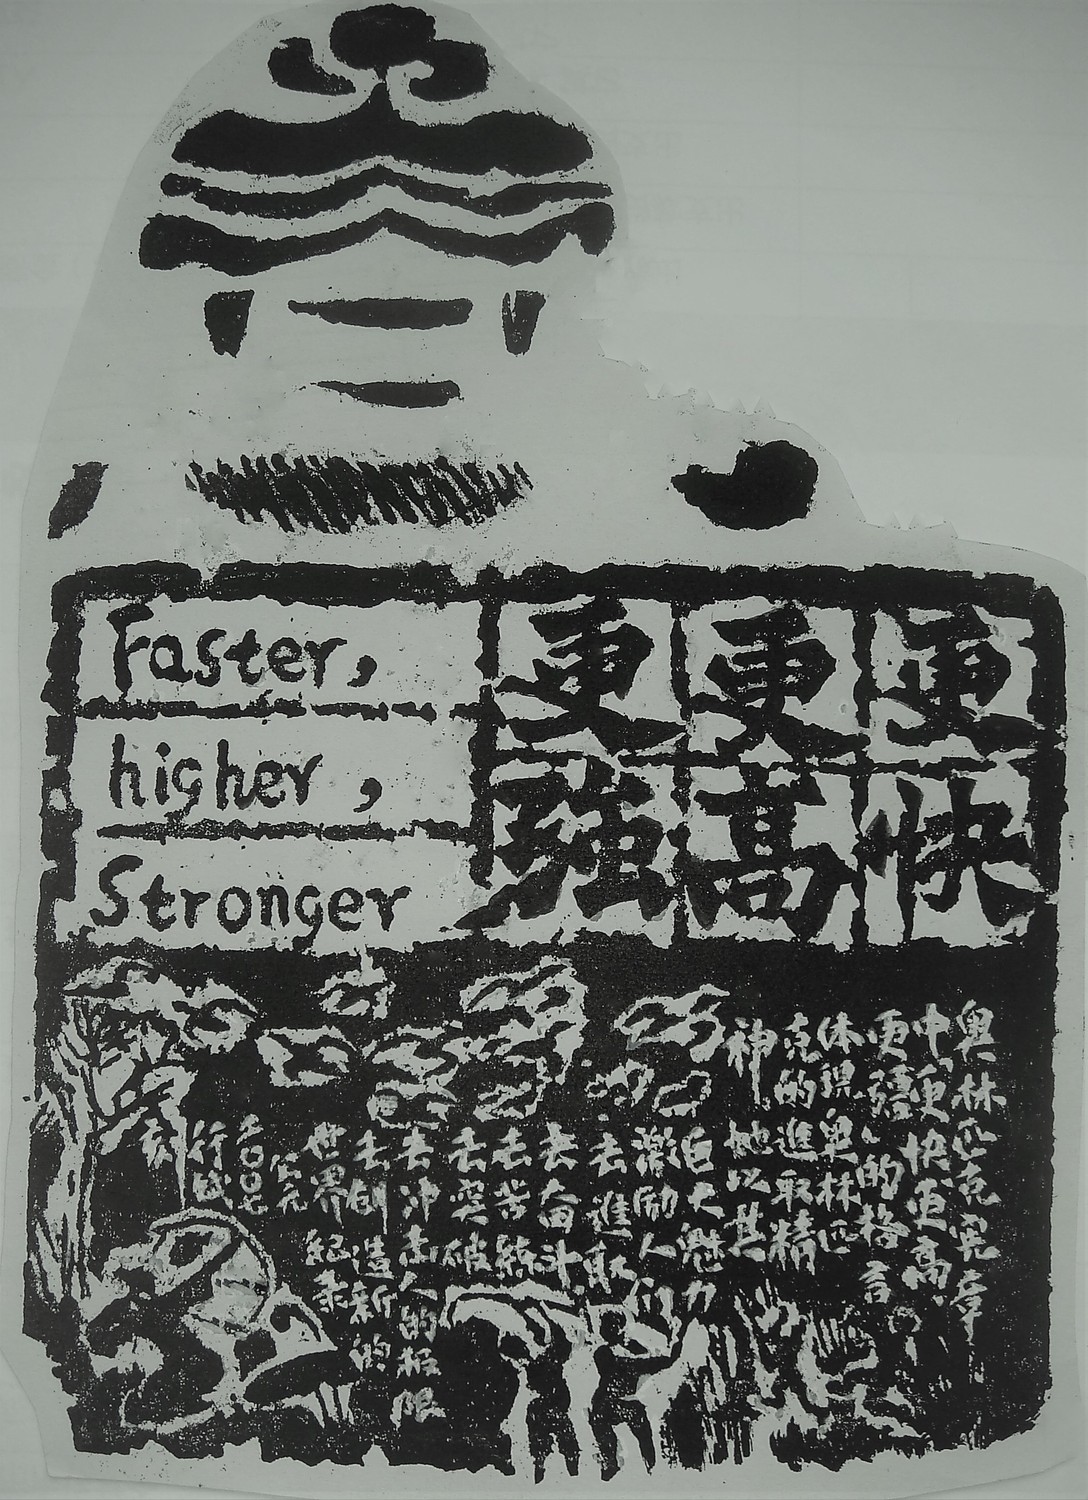 Faster,
higher,
Stronger
更快
更高
更强
奥林匹克宪章
中更快更高
更强的格言
体現奥林匹
克的進取精
神她以其
巨大魅力
激励人们
去進取
去奋斗
去苦練
去突破
去冲击人的极限
去創造新的
世界紀录
公元
二〇〇七
行
刻